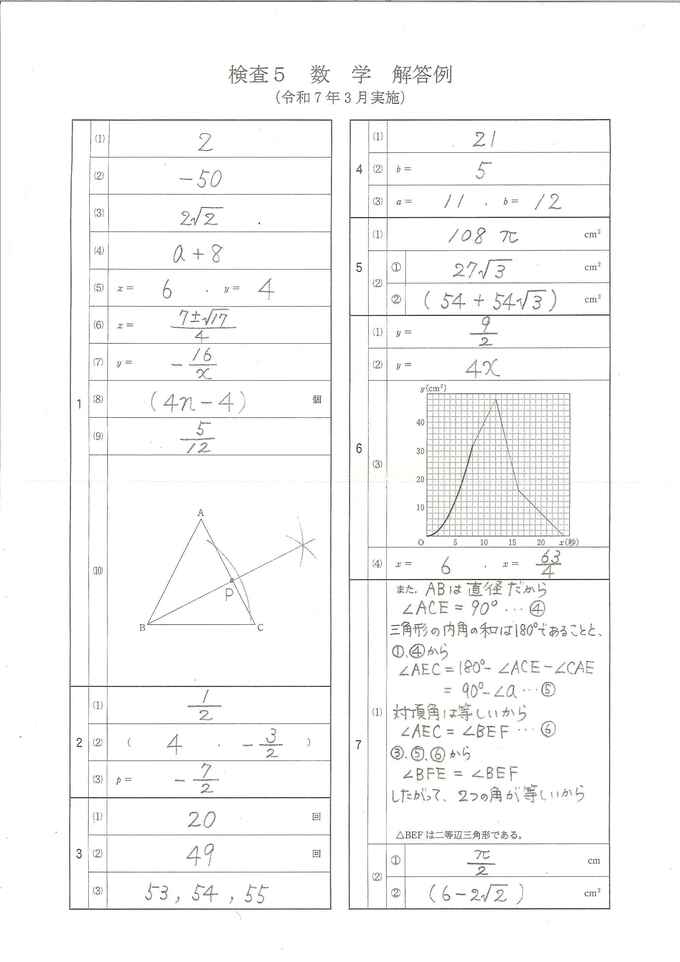 検査5 数 学 解答例
(令和7年3月実施)
1
(1) 2
(2) -50
(3) 2√2 .
(4) a+8
(5) x= 6 , y= 4
(6) x= (7±√17)/4
(7) y= -16/x
(8) (4n-4) 個
(9) 5/12
(10)
A
P
B C
2
(1) 1/2
(2) ( 4 , -3/2 )
(3) p= -7/2
3
(1) 20 回
(2) 49 回
(3) 53, 54, 55
4
(1) 21
(2) b= 5
(3) a= 11 , b= 12
5
(1) 108π cm²
(2) ① 27√3 cm²
② (54+54√3) cm²
6
(1) y= 9/2
(2) y= 4x
(3)
y(cm²)
40
30
20
10
O 5 10 15 20 x(秒)
(4) x= 6 , x= 63/4
7
(1)
また、ABは直径だから
∠ACE=90° … ④
三角形の内角の和は180°であることと、
①、④から
∠AEC=180°-∠ACE-∠CAE
=90°-∠a … ⑤
対頂角は等しいから
∠AEC=∠BEF … ⑥
③、⑤、⑥から
∠BFE=∠BEF
したがって、2つの角が等しいから
△BEFは二等辺三角形である。
(2) ① π/2 cm
② (6-2√2) cm²